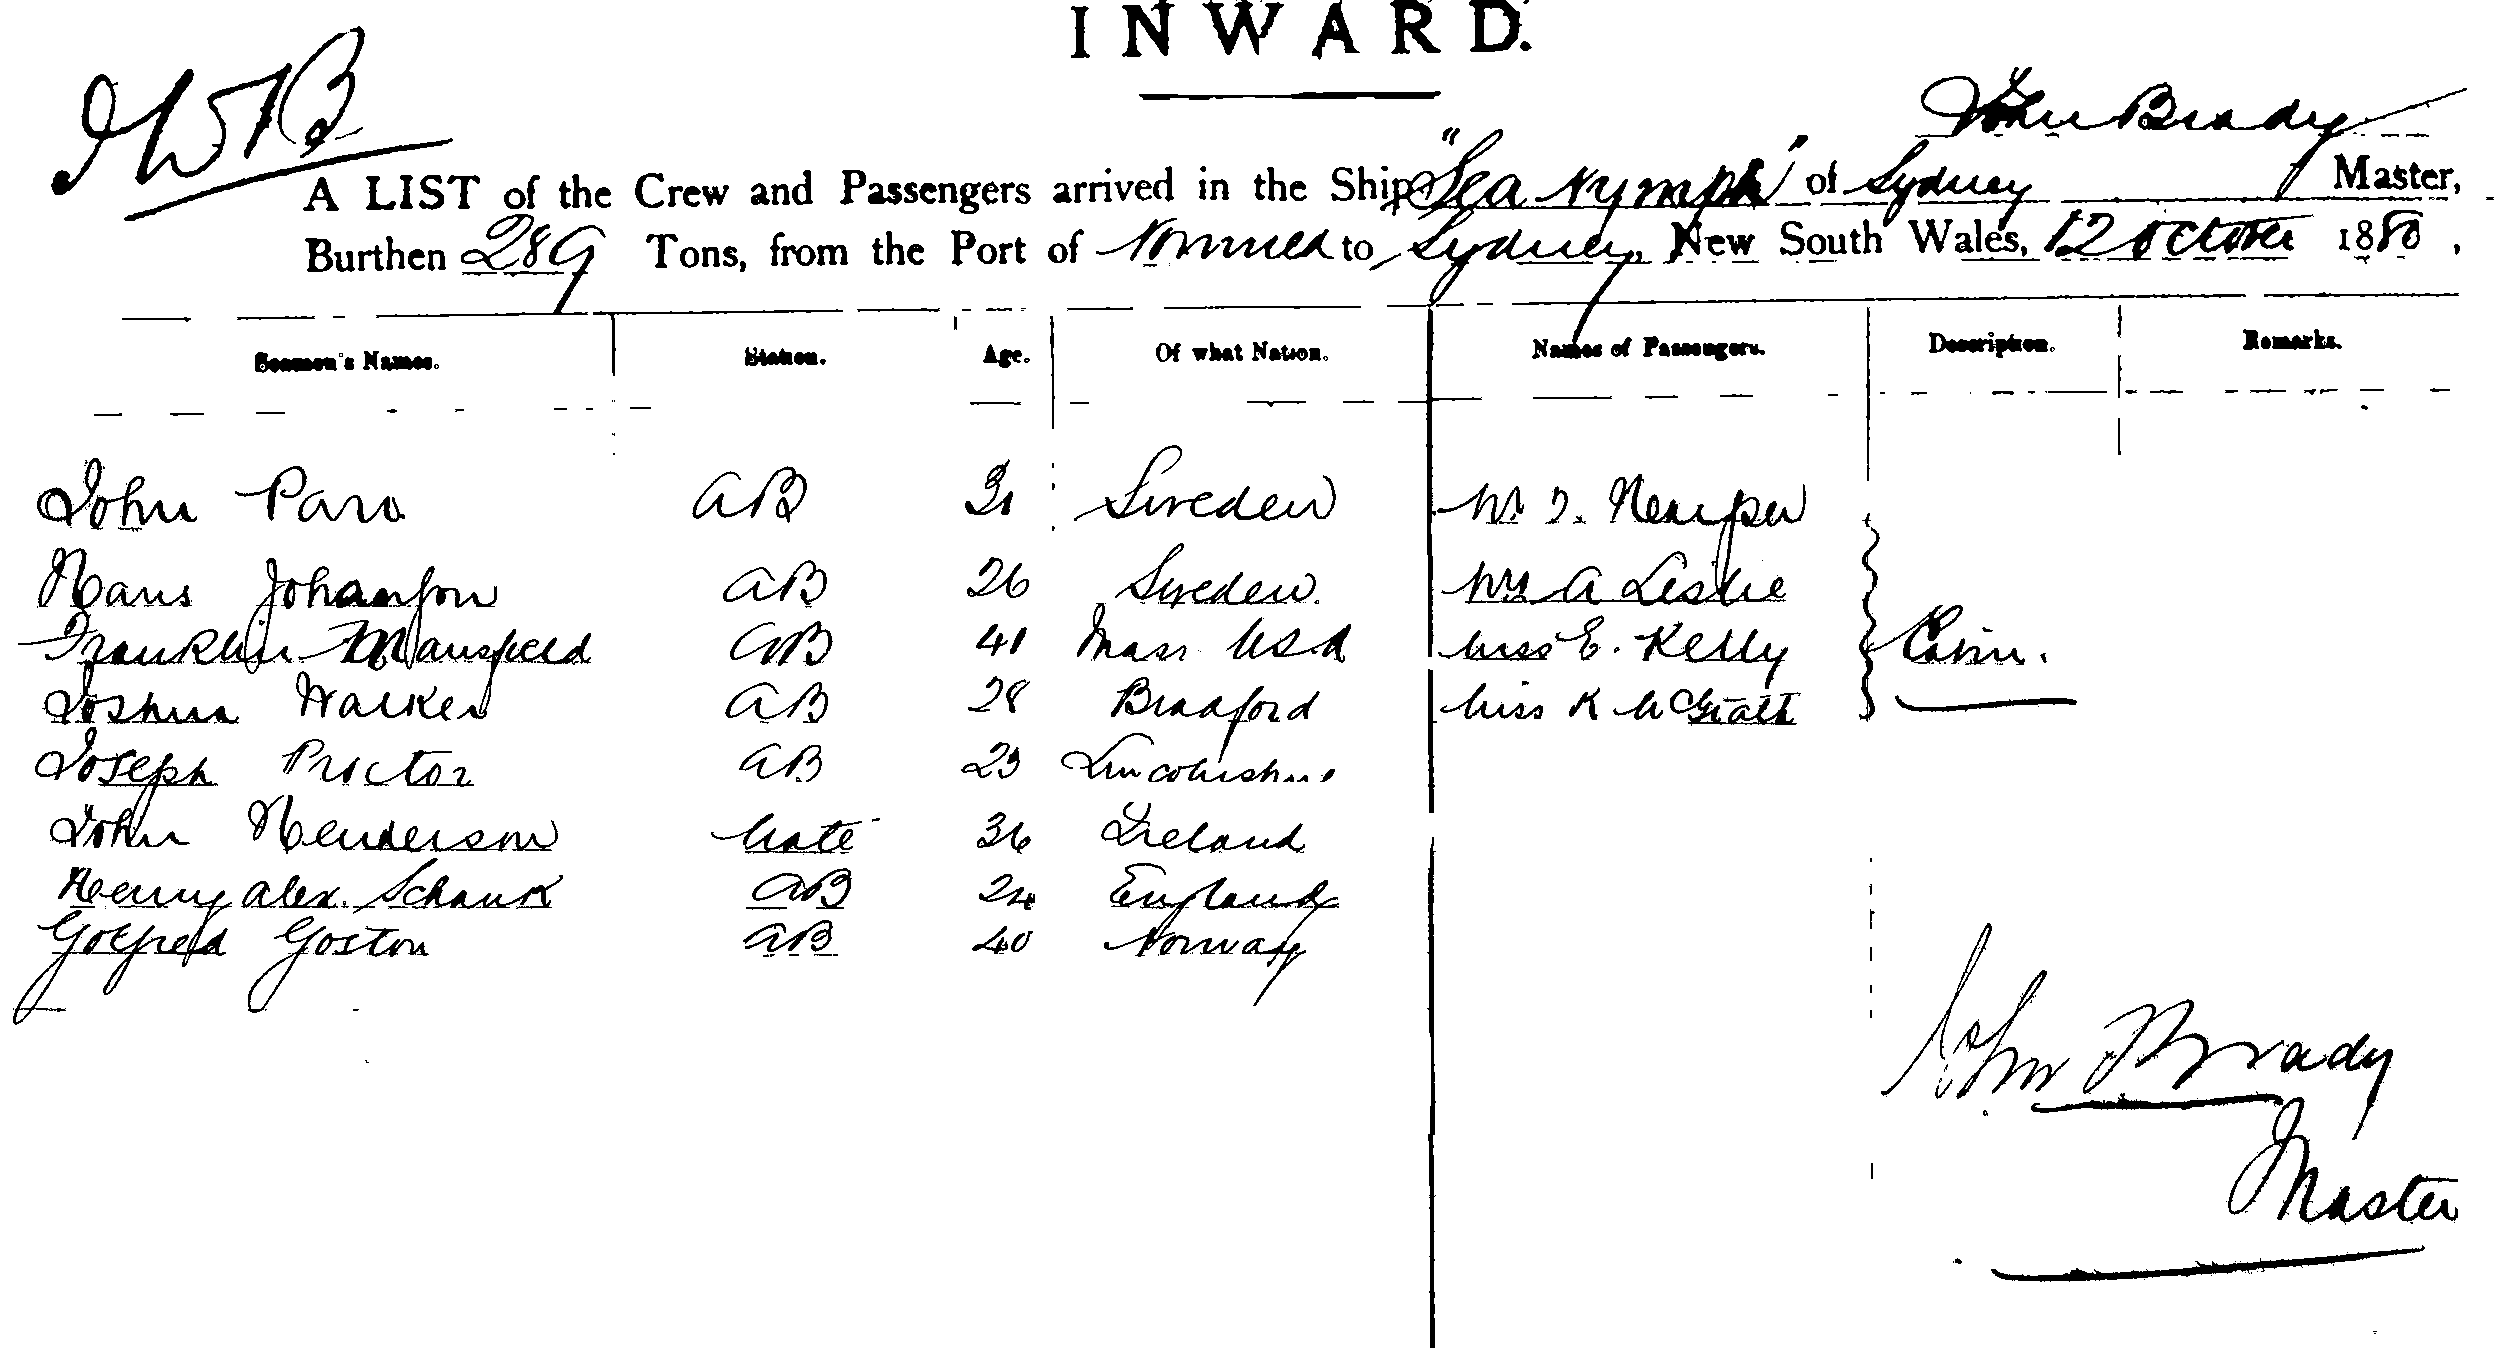 INWARD.
John Brady
A LIST of the Crew and Passengers arrived in the Ship "Sea Nymph" of Sydney Master,
Burthen 289 Tons, from the Port of to Sydney, New South Wales, 12 October 1880,
Seamen's Names. Station. Age. Of what Nation. Names of Passengers. Description. Remarks.
John AB 31 Sweden
Hans Johansson AB 26 Sweden. A Leslie
Franklin Mansfield AB 41 Mass USA Miss E. Kelly
Joshua Walker AB 28 Bradford Miss K McGrath
Joseph Proctor AB 23 Lincolnshire
John Henderson Mate 36 Ireland
Henry Alex. Schank AB 24 England
Goston AB 40 Norway
John Brady
Master